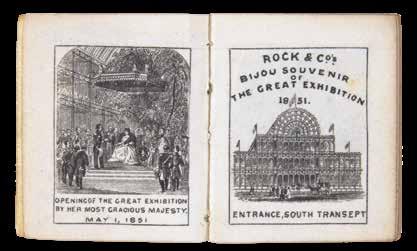 OPENING OF THE GREAT EXHIBITION
BY HER MOST GRACIOUS MAJESTY.
MAY 1, 1851
ROCK & Co's
BIJOU SOUVENIR
OF
THE GREAT EXHIBITION
1851.
ENTRANCE, SOUTH TRANSEPT